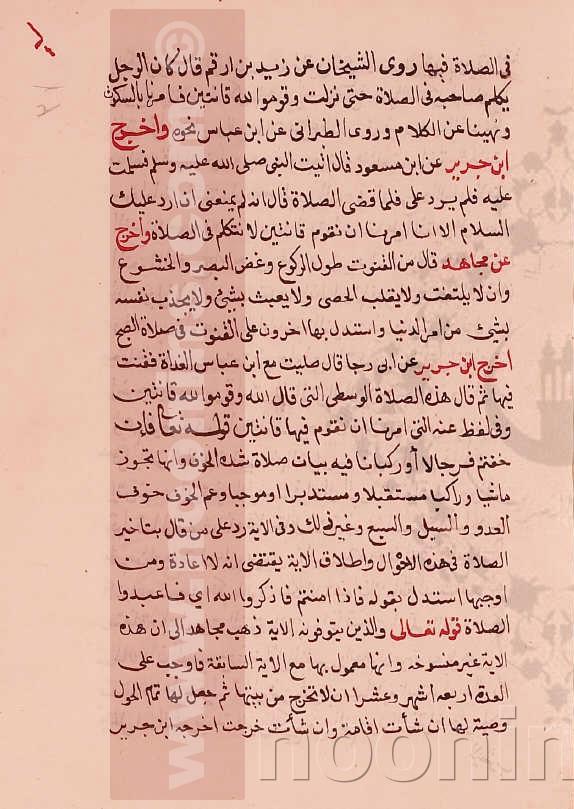 فى الصلاة فيها روى الشيخان عن زيد بن ارقم قال كان الرجل
يكلم صاحبه فى الصلاة حتى نزلت وقوموا لله قانتين فامرنا بالسكوت
ونهينا عن الكلام وروى الطبرانى عن ابن عباس نحوه واخرج
ابن جرير عن ابن مسعود قال اتيت النبى صلى الله عليه وسلم فسلمت
عليه فلم يرد على فلما قضى الصلاة قال انه لم يمنعنى ان ارد عليك
السلام الا انا امرنا ان نقوم قانتين لا نتكلم فى الصلاة واخرج
عن مجاهد قال من القنوت طول الركوع وغض البصر والخشوع
وان لا يلتفت ولا يقلب الحصى ولا يعبث بشئ ولا يحدث نفسه
بشئ من امر الدنيا واستدل بها اخرون على القنوت فى صلاة الصبح
اخرج ابن جرير عن ابى رجا قال صليت مع ابن عباس الغداة فقنت
فيها ثم قال هذه الصلاة الوسطى التى قال الله وقوموا لله قانتين
وفى لفظ عنه التى امرنا ان نقوم فيها قانتين قوله تعالى فإن
خفتم فرجالا أو ركبانا فيه بيان صلاة شدة الخوف وانها تجوز
ماشيا وراكبا مستقبلا ومستدبرا وموميا وعم الخوف خوف
العدو والسيل والسبع وغير ذلك وفى الاية رد على من قال بتاخير
الصلاة فى هذه الاحوال واطلاق الاية يقتضى انه لا اعادة ومن
اوجبها استدل بقوله فاذا امنتم فاذكروا الله اى فاعبدوا
الصلاة قوله تعالى والذين يتوفون الاية ذهب مجاهد الى ان هذه
الاية غير منسوخه وانها معمول بها مع الاية السابقة فاوجب على
العدة اربعه اشهر وعشرا ان لا تخرج من بيتها ثم جعل لها تمام الحول
وصية لها ان شأت اقامت وان شأت خرجت اخرجه ابن جرير
www.noorlib.com
noorlin